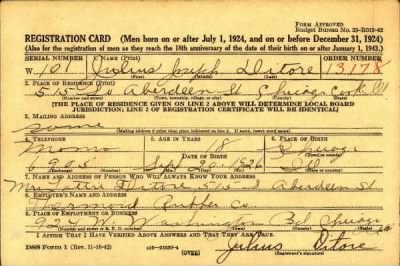 FORM APPROVED
Budget Bureau No. 33-R012-42
REGISTRATION CARD (Men born on or after July 1, 1924, and on or before December 31, 1924)
(Also for the registration of men as they reach the 18th anniversary of the date of their birth on or after January 1, 1943.)
SERIAL NUMBER 1. NAME (Print) ORDER NUMBER
W 101 Julius Joseph Ditore 13178
2. PLACE OF RESIDENCE (Print)
515 So Aberdeen St Chicago Cook Ill
[THE PLACE OF RESIDENCE GIVEN ON LINE 2 ABOVE WILL DETERMINE LOCAL BOARD
JURISDICTION; LINE 2 OF REGISTRATION CERTIFICATE WILL BE IDENTICAL]
3. MAILING ADDRESS
Same
[Mailing address if other than place indicated on line 2. If same, insert word same]
4. TELEPHONE 5. AGE IN YEARS 6. PLACE OF BIRTH
Monroe 18 Chicago
DATE OF BIRTH
6905 Sept 20 Ill
7. NAME AND ADDRESS OF PERSON WHO WILL ALWAYS KNOW YOUR ADDRESS
Mrs Ditore 515 S Aberdeen St
8. EMPLOYER'S NAME AND ADDRESS
Thermoid Rubber Co
9. PLACE OF EMPLOYMENT OR BUSINESS
924 W. Washington Bd Chicago Ill
I AFFIRM THAT I HAVE VERIFIED ABOVE ANSWERS AND THAT THEY ARE TRUE.
DSS Form 1 (Rev. 11-16-42) (OVER) Julius Ditore